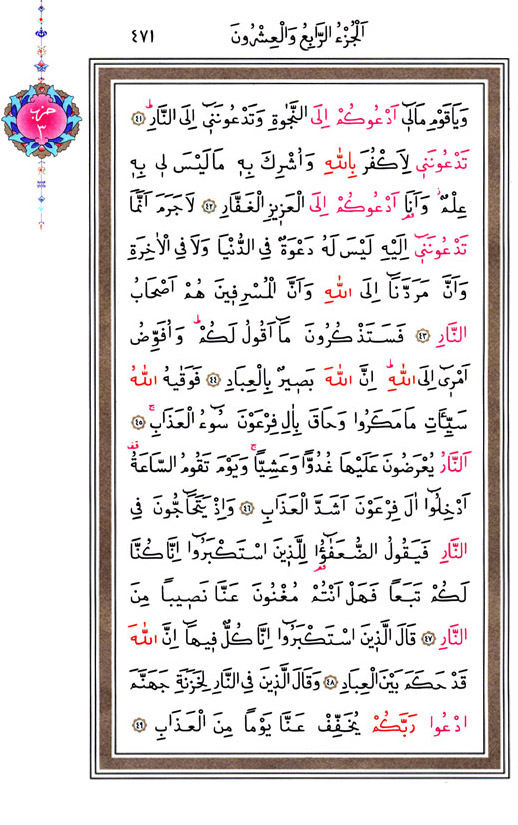 اَلْجُزْءُ الرَّابِعُ وَالْعِشْرُونَ ٤٧١
حزب
٣
وَيَاقَوْمِ مَالٓي اَدْعُوكُمْ اِلَى النَّجٰوةِ وَتَدْعُونَنٓي اِلَى النَّارِۜ ٤١
تَدْعُونَنٓي لِاَكْفُرَ بِاللّٰهِ وَاُشْرِكَ بِه۪ مَالَيْسَ ل۪ي بِه۪
عِلْمٌۘ وَاَنَا۬ اَدْعُوكُمْ اِلَى الْعَز۪يزِ الْغَفَّارِ ٤٢ لَاجَرَمَ اَنَّمَا
تَدْعُونَنٓي اِلَيْهِ لَيْسَ لَهُ دَعْوَةٌ فِي الدُّنْيَا وَلَا فِي الْاٰخِرَةِ
وَاَنَّ مَرَدَّنَٓا اِلَى اللّٰهِ وَاَنَّ الْمُسْرِف۪ينَ هُمْ اَصْحَابُ
النَّارِ ٤٣ فَسَتَذْكُرُونَ مَٓا اَقُولُ لَكُمْۜ وَاُفَوِّضُ
اَمْر۪ٓي اِلَى اللّٰهِۜ اِنَّ اللّٰهَ بَص۪يرٌ بِالْعِبَادِ ٤٤ فَوَقٰيهُ اللّٰهُ
سَيِّـَٔاتِ مَامَكَرُوا وَحَاقَ بِاٰلِ فِرْعَوْنَ سُٓوءُ الْعَذَابِۚ ٤٥
اَلنَّارُ يُعْرَضُونَ عَلَيْهَا غُدُوًّا وَعَشِيًّاۚ وَيَوْمَ تَقُومُ السَّاعَةُ۠
اَدْخِلُٓوا اٰلَ فِرْعَوْنَ اَشَدَّ الْعَذَابِ ٤٦ وَاِذْ يَتَحَٓاجُّونَ فِي
النَّارِ فَيَقُولُ الضُّعَفٰٓؤُ۬ا لِلَّذ۪ينَ اسْتَكْبَرُٓوا اِنَّا كُنَّا
لَكُمْ تَبَعًا فَهَلْ اَنْتُمْ مُغْنُونَ عَنَّا نَص۪يبًا مِنَ
النَّارِ ٤٧ قَالَ الَّذ۪ينَ اسْتَكْبَرُٓوا اِنَّا كُلٌّ ف۪يهَٓا اِنَّ اللّٰهَ
قَدْ حَكَمَ بَيْنَ الْعِبَادِ ٤٨ وَقَالَ الَّذ۪ينَ فِي النَّارِ لِخَزَنَةِ جَهَنَّمَ
ادْعُوا رَبَّكُمْ يُخَفِّفْ عَنَّا يَوْمًا مِنَ الْعَذَابِ ٤٩